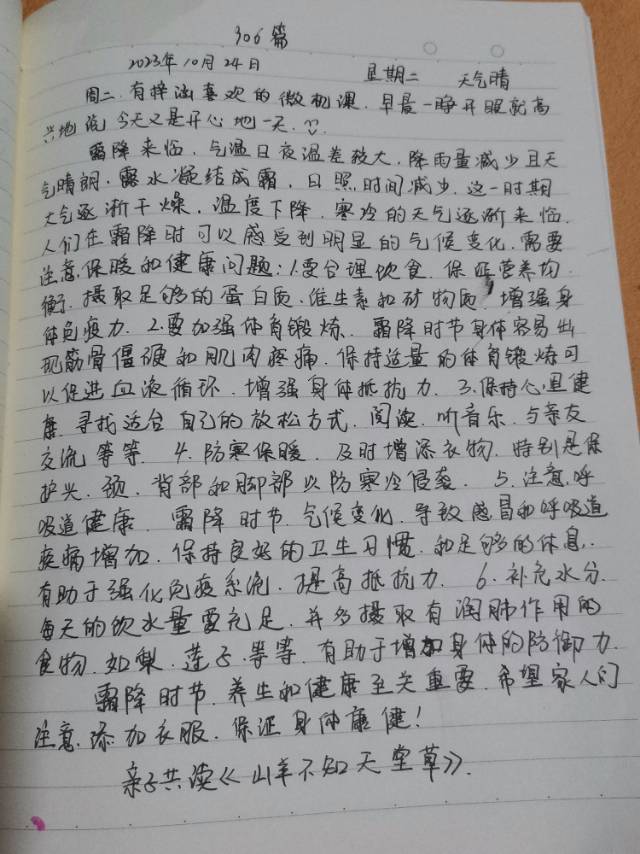 306篇
2023年10月24日 星期二 天气晴
周二.有梓涵喜欢的微机课.早晨一睁开眼就高
兴地说今天又是开心地一天.
霜降来临.气温日夜温差较大.降雨量减少且天
气晴朗.露水凝结成霜.日照时间减少.这一时期
大气逐渐干燥.温度下降.寒冷的天气逐渐来临.
人们在霜降时可以感受到明显的气候变化.需要
注意保暖和健康问题:1.要合理饮食.保证营养均
衡.摄取足够的蛋白质.维生素和矿物质.增强身
体免疫力.2.要加强体育锻炼.霜降时节身体容易出
现筋骨僵硬和肌肉疼痛.保持适量的体育锻炼可
以促进血液循环.增强身体抵抗力.3.保持心理健
康.寻找适合自己的放松方式.阅读.听音乐.与亲友
交流等等.4.防寒保暖.及时增添衣物.特别是保
护头.颈.背部和脚部以防寒冷侵袭.5.注意呼
吸道健康.霜降时节.气候变化.导致感冒和呼吸道
疾病增加.保持良好的卫生习惯.和足够的休息.
有助于强化免疫系统.提高抵抗力.6.补充水分.
每天的饮水量要充足.并多摄取有润肺作用的
食物.如梨.莲子.等等.有助于增加身体的防御力.
霜降时节.养生和健康至关重要.希望家人们
注意添加衣服.保证身体康健!
亲子共读《山羊不知天堂草》.